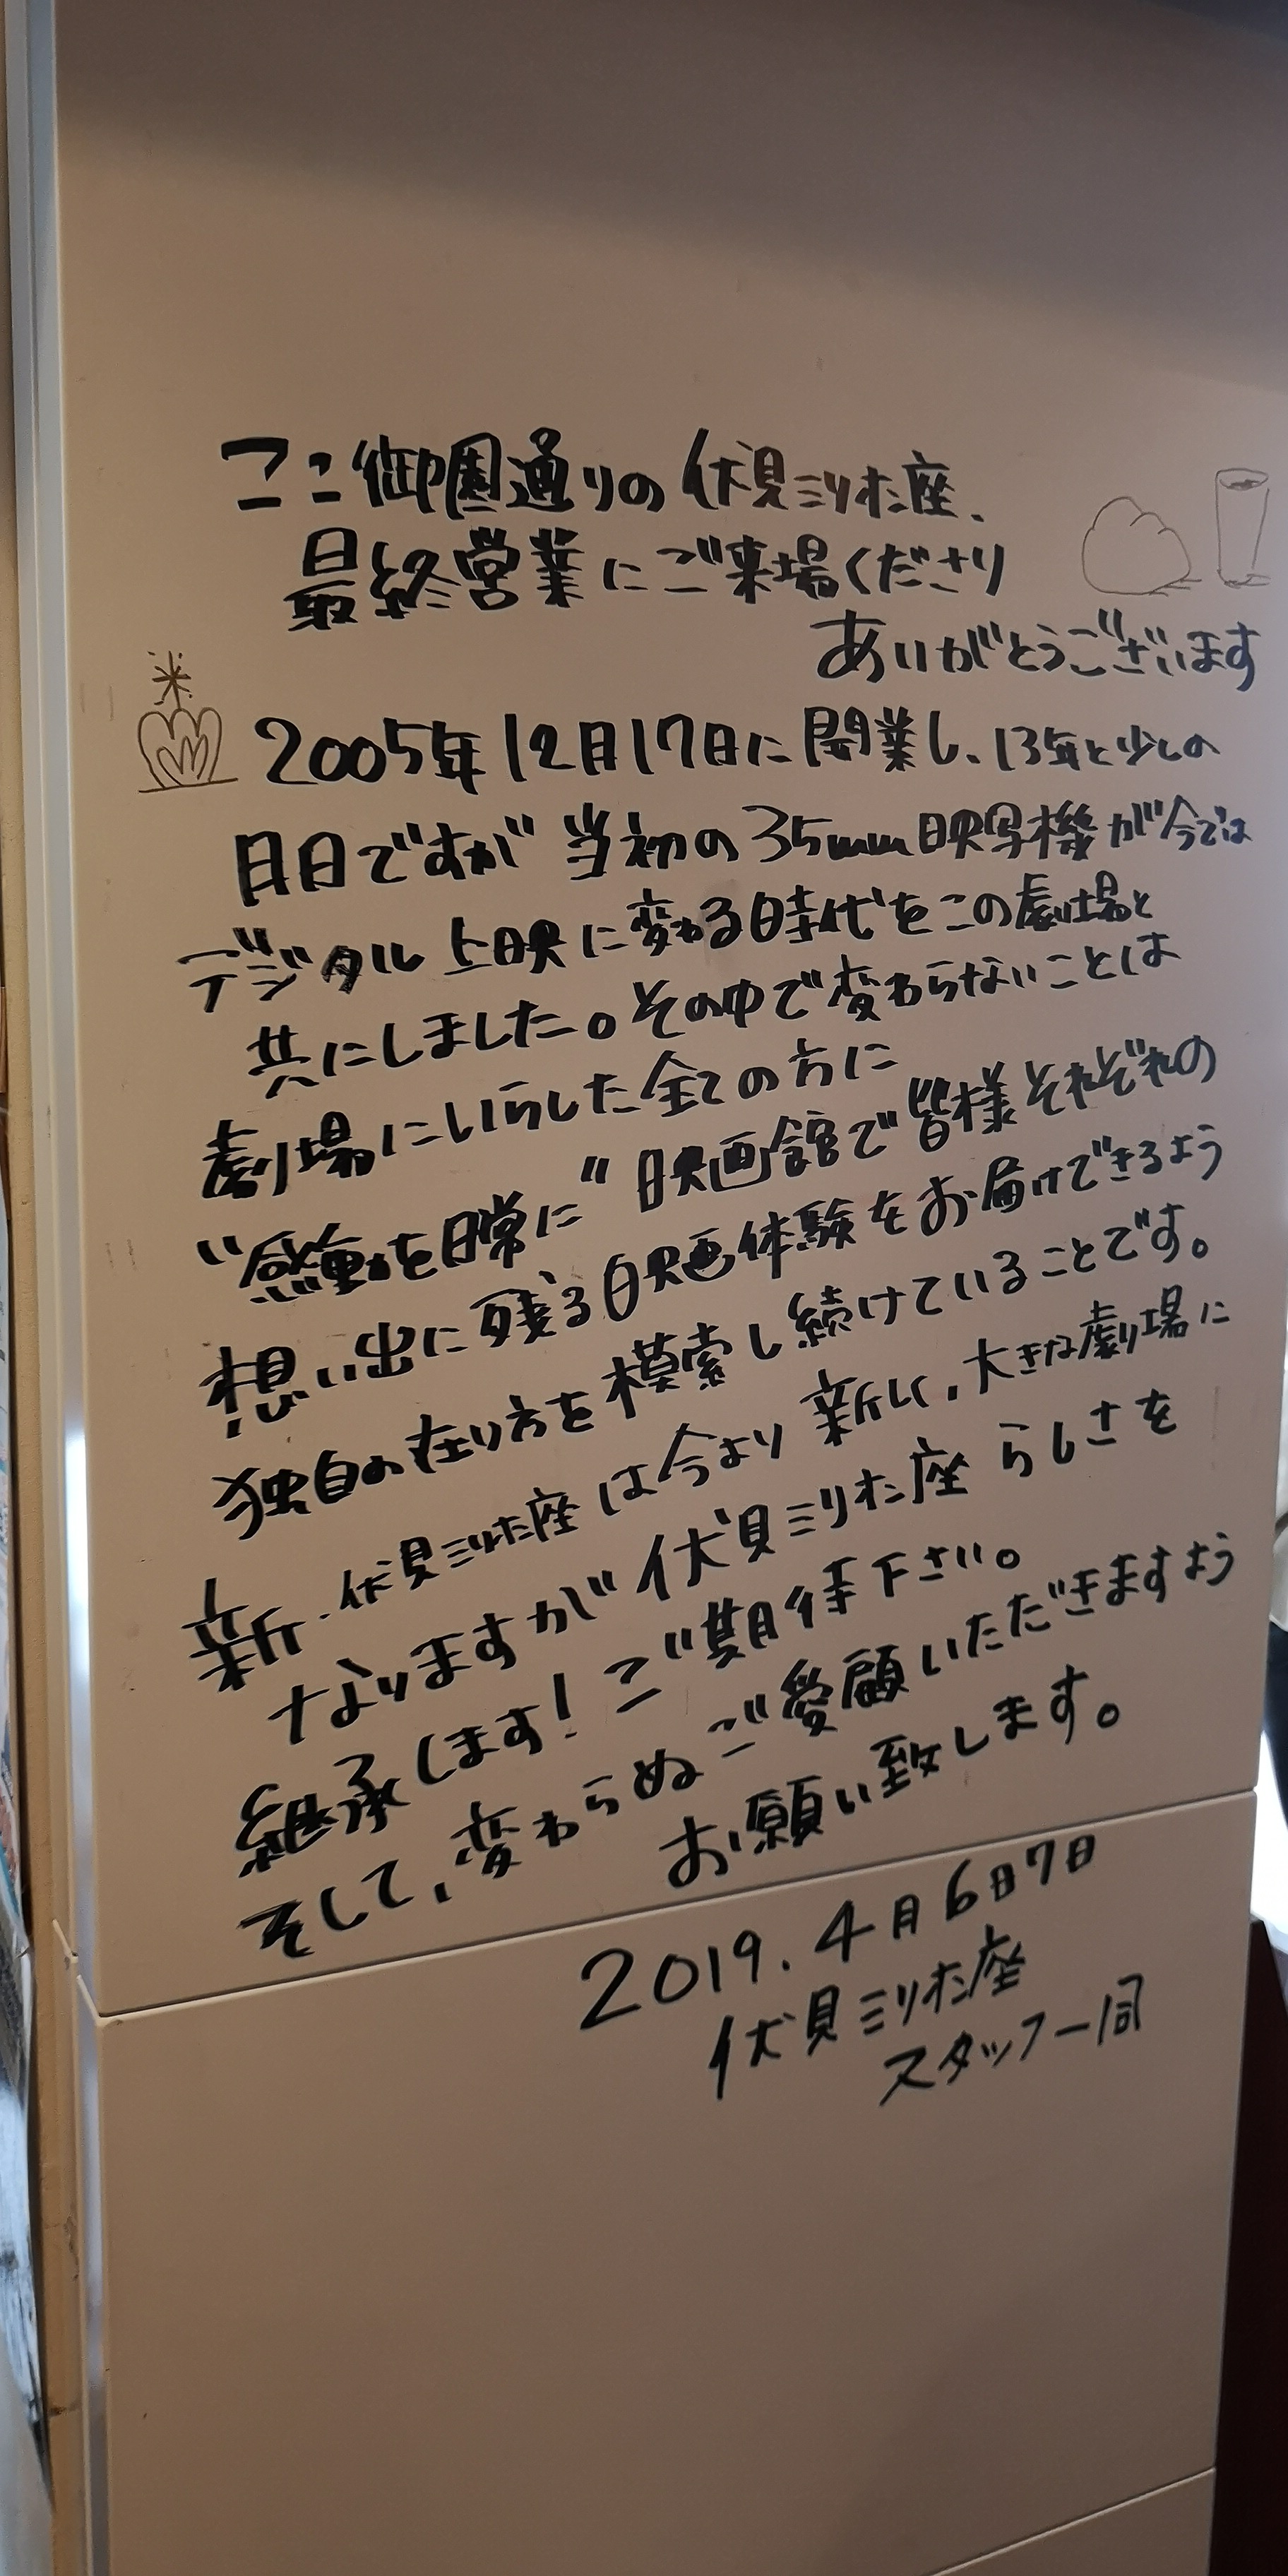 ここ御園通りの伏見ミリオン座、
最終営業にご来場くださり
ありがとうございます
2005年12月17日に開業し、13年と少しの
月日ですが当初の35mm映写機が今では
デジタル上映に変わる時代をこの劇場と
共にしました。その中で変わらないことは
劇場にいらした全ての方に
"感動を日常に"映画館で皆様それぞれの
想い出に残る映画体験をお届けできるよう
独自の在り方を模索し続けていることです。
新・伏見ミリオン座は今より新しく、大きな劇場に
なりますが伏見ミリオン座らしさを
継承します!ご期待下さい。
そして、変わらぬご愛顧いただきますよう
お願い致します。
2019.4月6日7日
伏見ミリオン座
スタッフ一同